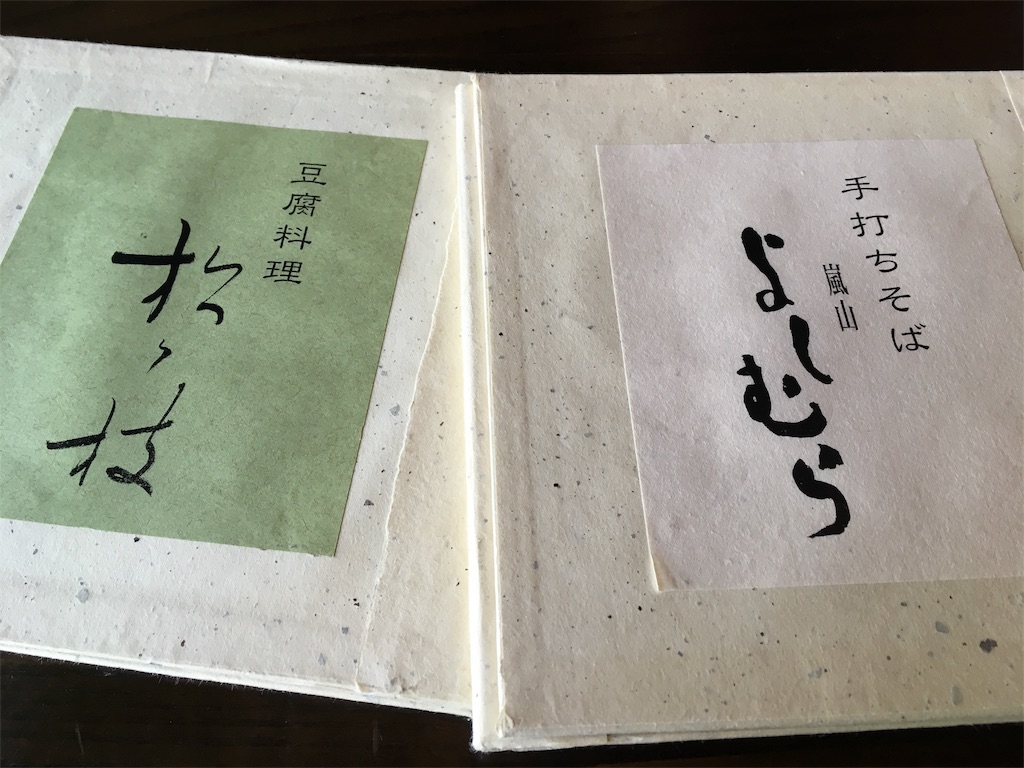 豆腐料理
松ヶ枝
手打ちそば
嵐山
よしむら